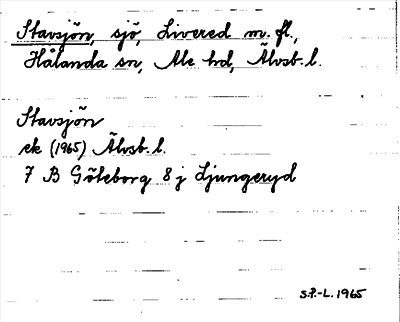 Stavsjön, sjö, Livered m. fl.,
Hålanda sn, Ale hd, Älvsb. l.
Stavsjön
ek (1965) Älvsb. l.
7 B Göteborg 8 j Ljungeryd
S.P.-L. 1965